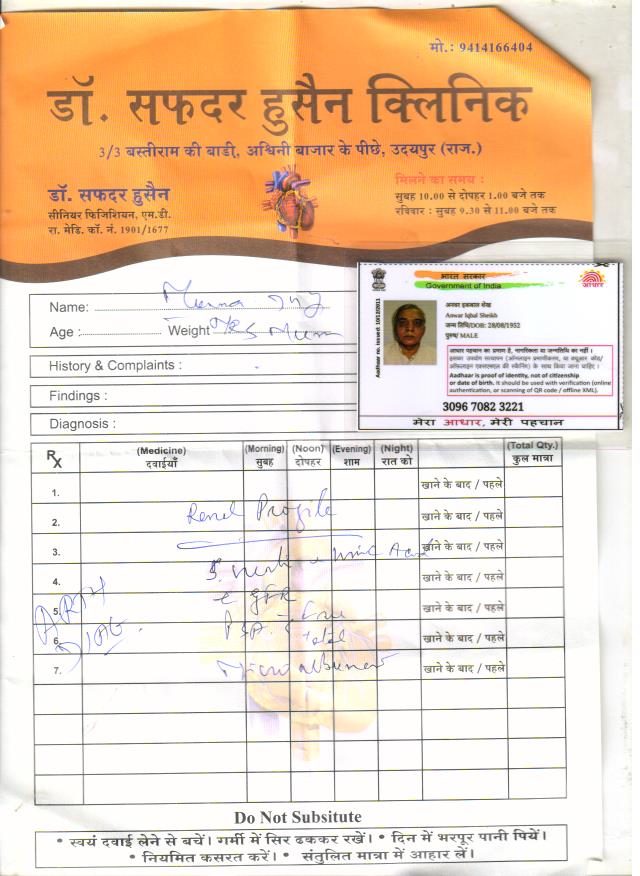 मो.: 9414166404
डॉ. सफदर हुसैन क्लिनिक
3/3 बस्तीराम की बाडी, अश्विनी बाजार के पीछे, उदयपुर (राज.)
डॉ. सफदर हुसैन
सीनियर फिजिशियन, एम.डी.
रा. मेडि. कॉ. नं. 1901/1677
मिलने का समय :
सुबह 10.00 से दोपहर 1.00 बजे तक
रविवार : सुबह 9.30 से 11.00 बजे तक
Name:
Age : Weight
History & Complaints :
Findings :
Diagnosis :
भारत सरकार
Government of India
आधार
Aadhaar no. issued: 10/12/2011
अनवर इकबाल शेख
Anwar Iqbal Sheikh
जन्म तिथि/DOB: 28/08/1952
पुरुष/ MALE
आधार पहचान का प्रमाण है, नागरिकता या जन्मतिथि का नहीं ।
इसका उपयोग सत्यापन (ऑनलाइन प्रमाणीकरण, या क्यूआर कोड/
ऑफलाइन एक्सएमएल की स्कैनिंग) के साथ किया जाना चाहिए ।
Aadhaar is proof of identity, not of citizenship
or date of birth. It should be used with verification (online
authentication, or scanning of QR code / offline XML).
3096 7082 3221
मेरा आधार, मेरी पहचान
Rx (Medicine) (Morning) (Noon) (Evening) (Night) (Total Qty.)
दवाईयाँ सुबह दोपहर शाम रात को कुल मात्रा
1. खाने के बाद / पहले
2. Renal Profile खाने के बाद / पहले
3. खाने के बाद / पहले
4. खाने के बाद / पहले
5. खाने के बाद / पहले
6. Total खाने के बाद / पहले
7. खाने के बाद / पहले
Do Not Subsitute
* स्वयं दवाई लेने से बचें। गर्मी में सिर ढककर रखें। * दिन में भरपूर पानी पियें।
* नियमित कसरत करें। * संतुलित मात्रा में आहार लें।